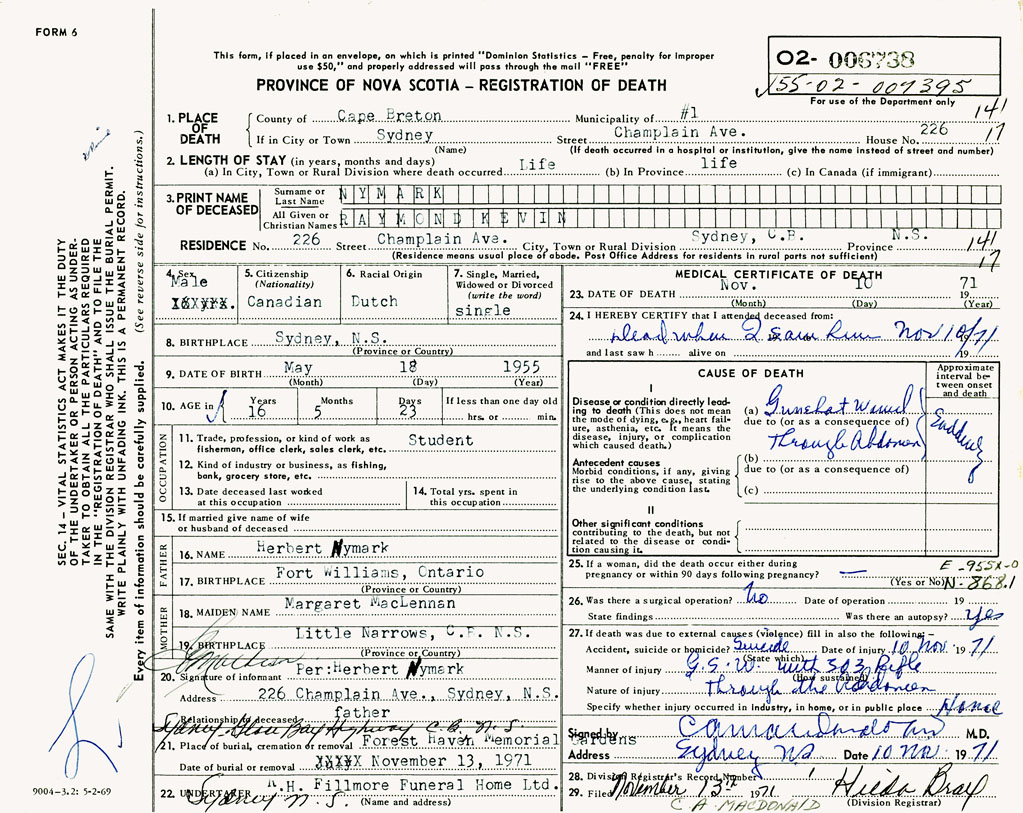 FORM 6
This form, if placed in an envelope, on which is printed "Dominion Statistics – Free, penalty for improper
use $50," and properly addressed will pass through the mail "FREE"
PROVINCE OF NOVA SCOTIA – REGISTRATION OF DEATH
02- 006738
155-02-007395
For use of the Department only
141
17
1. PLACE OF DEATH
County of Cape Breton Municipality of #1
If in City or Town Sydney Street Champlain Ave. House No. 226
(Name) (If death occurred in a hospital or institution, give the name instead of street and number)
2. LENGTH OF STAY (in years, months and days)
(a) In City, Town or Rural Division where death occurred Life (b) In Province life (c) In Canada (if immigrant)
3. PRINT NAME OF DECEASED
Surname or Last Name NYMARK
All Given or Christian Names RAYMOND KEVIN
RESIDENCE No. 226 Street Champlain Ave. City, Town or Rural Division Sydney, C.B. Province N.S.
141
17
(Residence means usual place of abode. Post Office Address for residents in rural parts not sufficient)
4. Sex Male
5. Citizenship (Nationality) Canadian
6. Racial Origin Dutch
7. Single, Married, Widowed or Divorced (write the word) single
8. BIRTHPLACE Sydney, N.S.
(Province or Country)
9. DATE OF BIRTH May 18 1955
(Month) (Day) (Year)
10. AGE in Years 16 Months 5 Days 23 If less than one day old hrs. or min.
OCCUPATION
11. Trade, profession, or kind of work as fisherman, office clerk, sales clerk, etc. Student
12. Kind of industry or business, as fishing, bank, grocery store, etc.
13. Date deceased last worked at this occupation
14. Total yrs. spent in this occupation
15. If married give name of wife or husband of deceased
FATHER
16. NAME Herbert Nymark
17. BIRTHPLACE Fort Williams, Ontario
(Province or Country)
MOTHER
18. MAIDEN NAME Margaret MacLennan
19. BIRTHPLACE Little Narrows, C.B. N.S.
(Province or Country)
20. Signature of informant Per:Herbert Nymark
Address 226 Champlain Ave., Sydney, N.S.
Relationship to deceased father
Sydney Glace Bay Highway C.B. N.S.
21. Place of burial, cremation or removal Forest Haven Memorial Gardens
Date of burial or removal XXXXX November 13, 1971
22. UNDERTAKER A.H. Fillmore Funeral Home Ltd.
Sydney N.S. (Name and address)
MEDICAL CERTIFICATE OF DEATH
23. DATE OF DEATH Nov. 10 1971
(Month) (Day) (Year)
24. I HEREBY CERTIFY that I attended deceased from:
Dead when I saw him Nov 10/71
and last saw h alive on 19
CAUSE OF DEATH
Approximate interval between onset and death
I
Disease or condition directly leading to death (This does not mean the mode of dying, e.g., heart failure, asthenia, etc. It means the disease, injury, or complication which caused death.)
(a) Gunshot Wound
due to (or as a consequence of)
Through Abdomen
Suddenly
Antecedent causes
Morbid conditions, if any, giving rise to the above cause, stating the underlying condition last.
(b)
due to (or as a consequence of)
(c)
II
Other significant conditions contributing to the death, but not related to the disease or condition causing it.
25. If a woman, did the death occur either during pregnancy or within 90 days following pregnancy? — (Yes or No)
E-955X-0
N-868.1
26. Was there a surgical operation? No Date of operation 19
State findings Was there an autopsy? Yes
27. If death was due to external causes (violence) fill in also the following:–
Accident, suicide or homicide? Suicide Date of injury 10 Nov. 1971
(State which)
Manner of injury G.S.W. with 303 Rifle
(How sustained)
Nature of injury Through the Abdomen
Specify whether injury occurred in industry, in home, or in public place Home
Signed by M.D.
Address Sydney NS Date 10 Nov 1971
28. Division Registrar's Record Number
29. Filed November 13th 1971 Hilda Bray
(Division Registrar)
C A MACDONALD
SEC. 14 – VITAL STATISTICS ACT MAKES IT THE DUTY
OF THE UNDERTAKER OR PERSON ACTING AS UNDER-
TAKER TO OBTAIN ALL THE PARTICULARS REQUIRED
IN THE "REGISTRATION OF DEATH" AND TO FILE THE
SAME WITH THE DIVISION REGISTRAR WHO SHALL ISSUE THE BURIAL PERMIT.
WRITE PLAINLY WITH UNFADING INK. THIS IS A PERMANENT RECORD.
Every item of information should be carefully supplied. (See reverse side for instructions.)
9004-3.2: 5-2-69